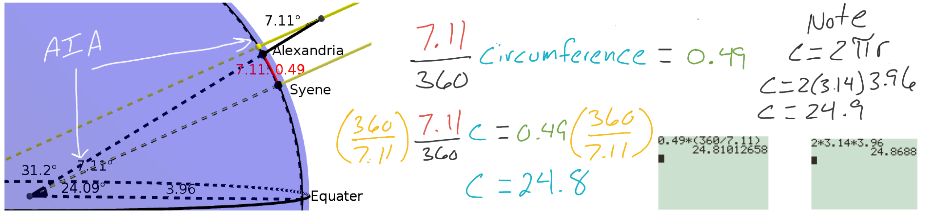 7.11°
AIA
Alexandria
7.11° 0.49
Syene
31.2°
7.11°
24.09°
3.96
Equater
7.11
360
circumference = 0.49
(360/7.11) 7.11/360 C = 0.49 (360/7.11)
C = 24.8
Note
C = 2πr
C = 2(3.14)3.96
C = 24.9
0.49*(360/7.11)
24.81012658
2*3.14*3.96
24.8688